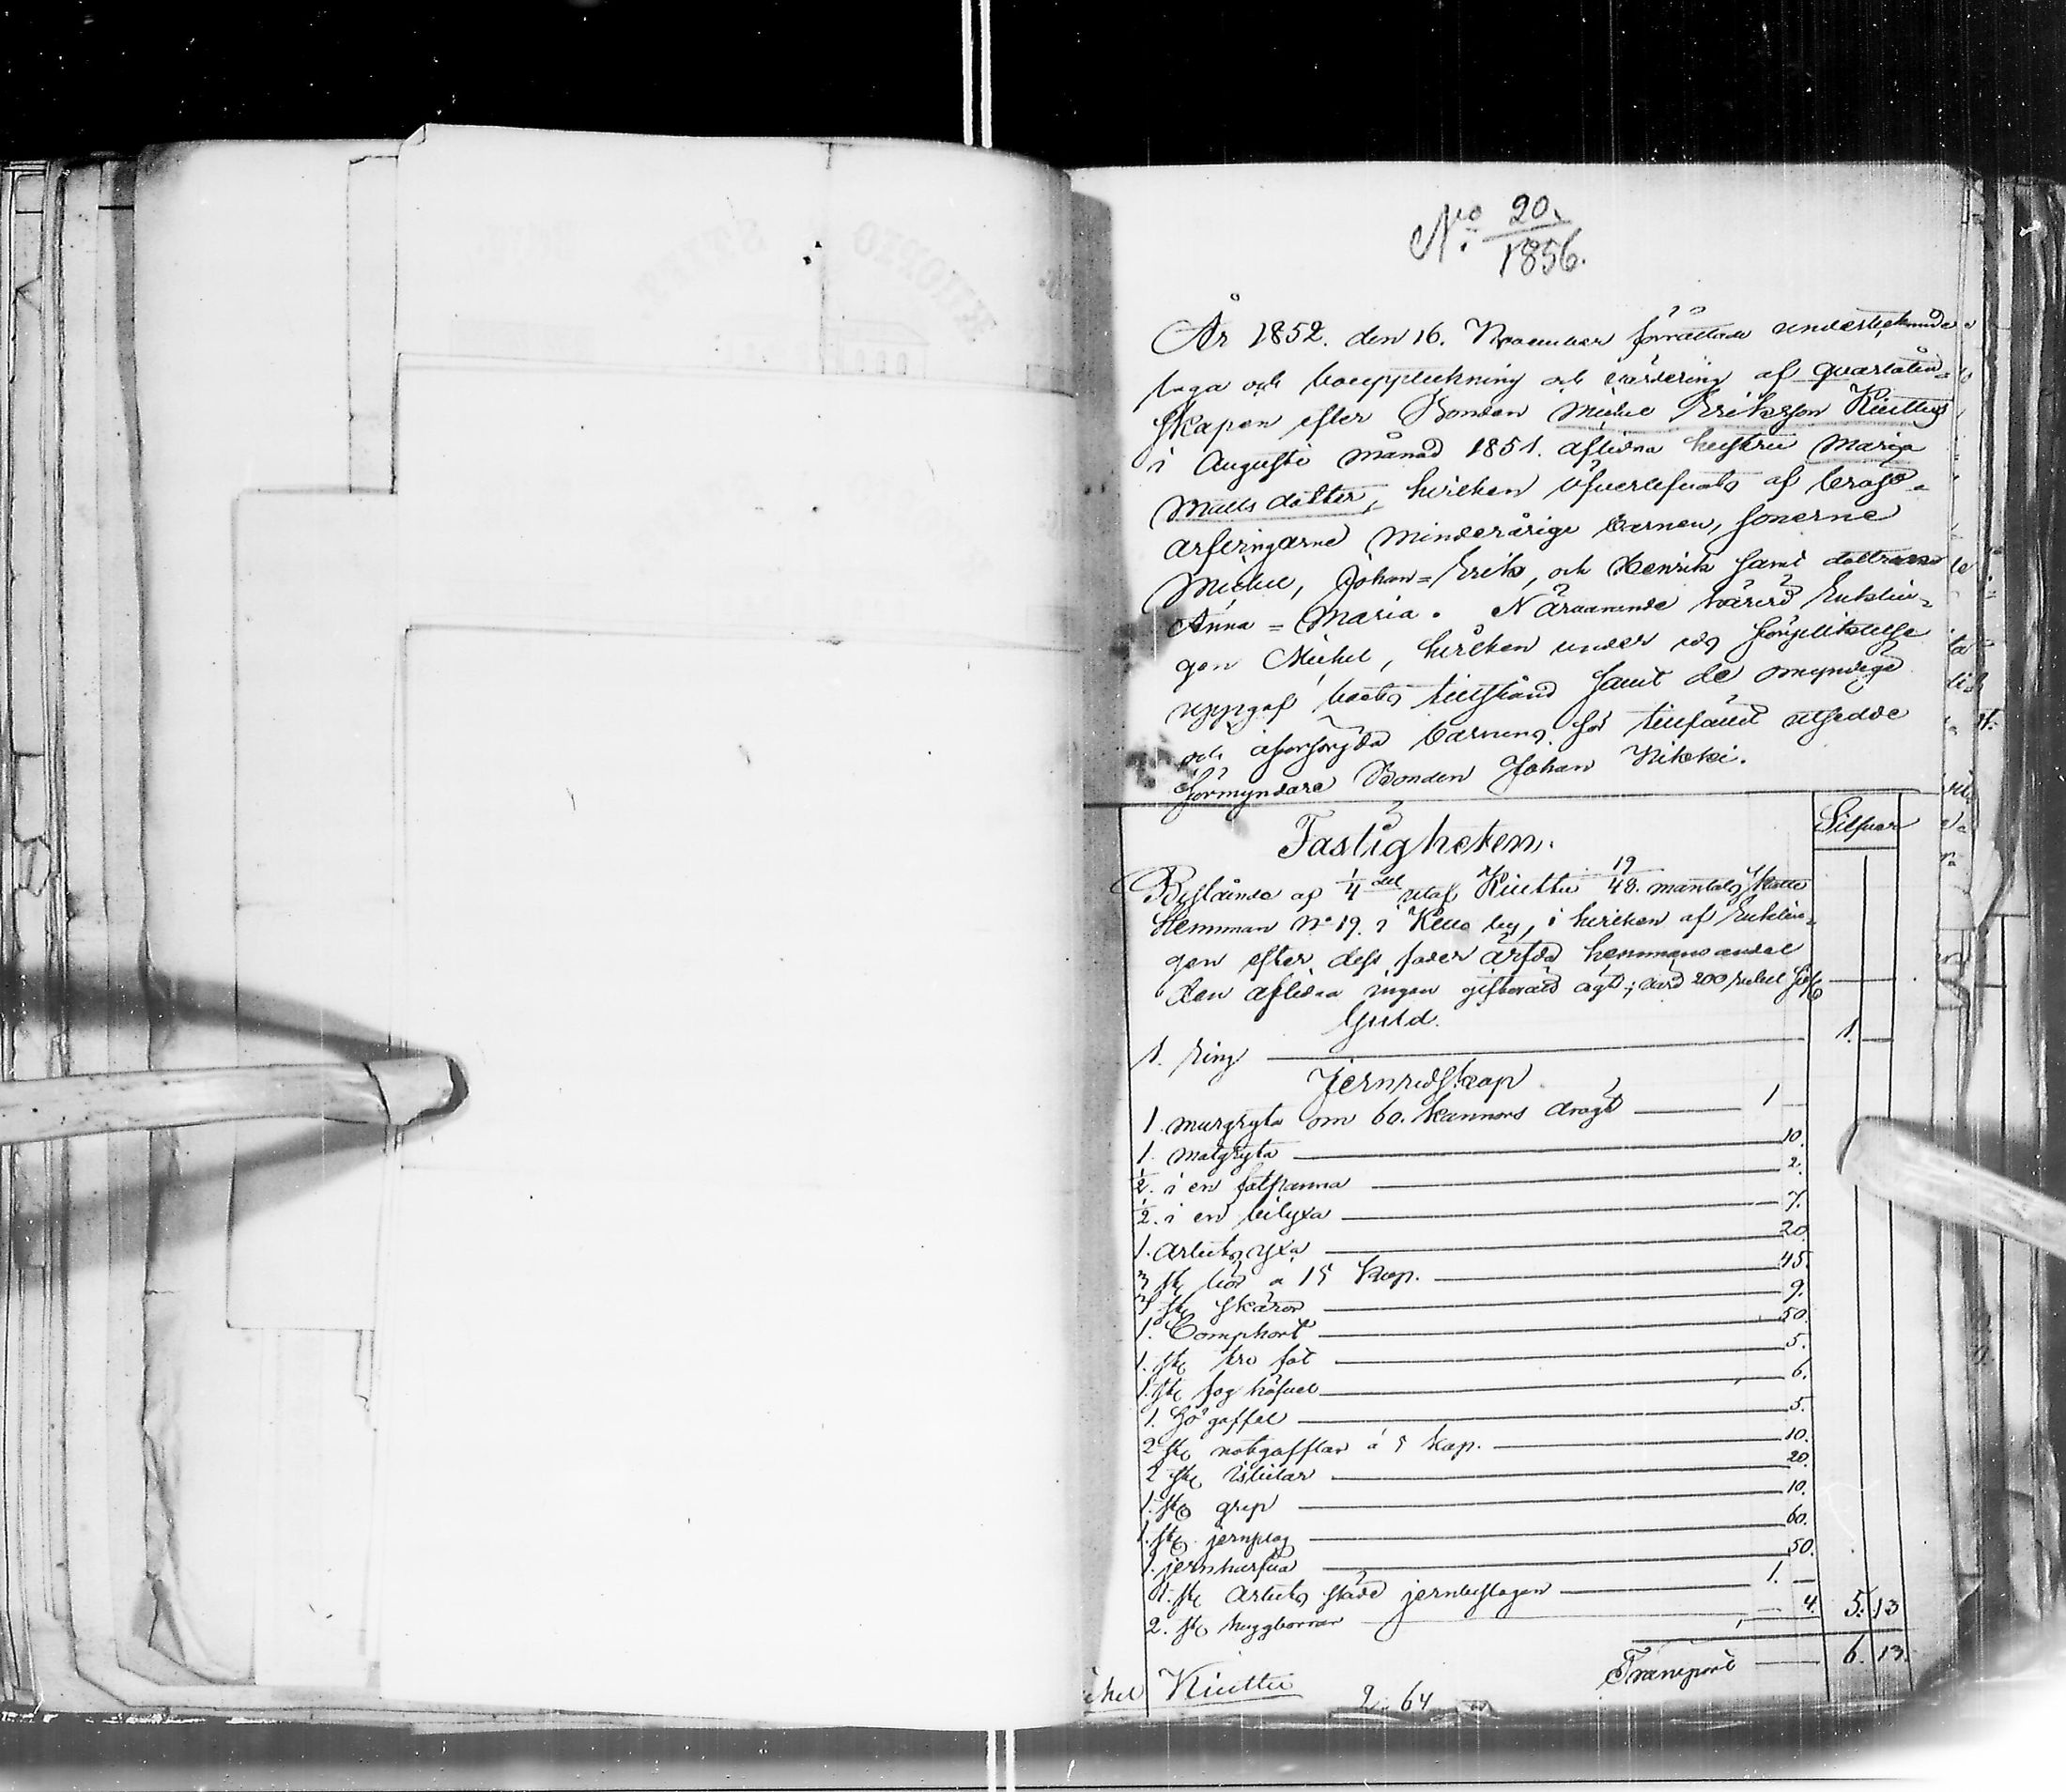 No: 20.
1856.
År 1852. den 16. November förrättade undertecknade
laga och bouppteckning och värdering af qvarlåten-
skapen efter Bonden Michel Eriksson Kiuttus
i Augusti månad 1851. aflidna hustru Maria
Matts dotter, hvilken öfverlefvats af bröst-
arfvingarne minderåriga barnen, sonerne
Michel, Johan=Erik, och Henrik samt dottren
Anna=Maria. Närvarande härvid Enklin-
gen Michel, hvilken under eds förplicktelse
uppgaf boets tillstånd samt de omyndige
och oförsörgda barnens för tillfället utsedde
förmyndare Bonden Johan Nikki.
Silfver
Fastigheten.
Bestående af 1/4 del utaf Kiuttu 19/48. mantals Skatte
Hemman No 19. i by, i hvilken af Enklin-
gen efter dess fader ärfda hemmans andel
den aflidna ingen giftorätt ägt; värd 200 rubel Silf
Guld.
1. ring 1. —
Jernredskap
1. murgryta om 60. kannors dragt 1 —
1. matgryta 10.
1/2. i en fatpanna 2.
1/2. i en bilyxa 7.
1. arbets yxa 20.
3 st liar a 15 kop. 45.
3 st skäror 9.
1. Comphort 50.
1. st tre fot 5.
1. st 6.
1. Högaffel 5.
2 st notgafflar á 5 kop. 10.
2 st isbilar 20.
1. st grep 10.
1. st jernplog 60.
1. jernharfva 50.
st arbets släde jernbeslagen 1. —
2. st huggborrar 4. 5. 13
Transport 6. 13.
ichel Kiuttu
2. 64